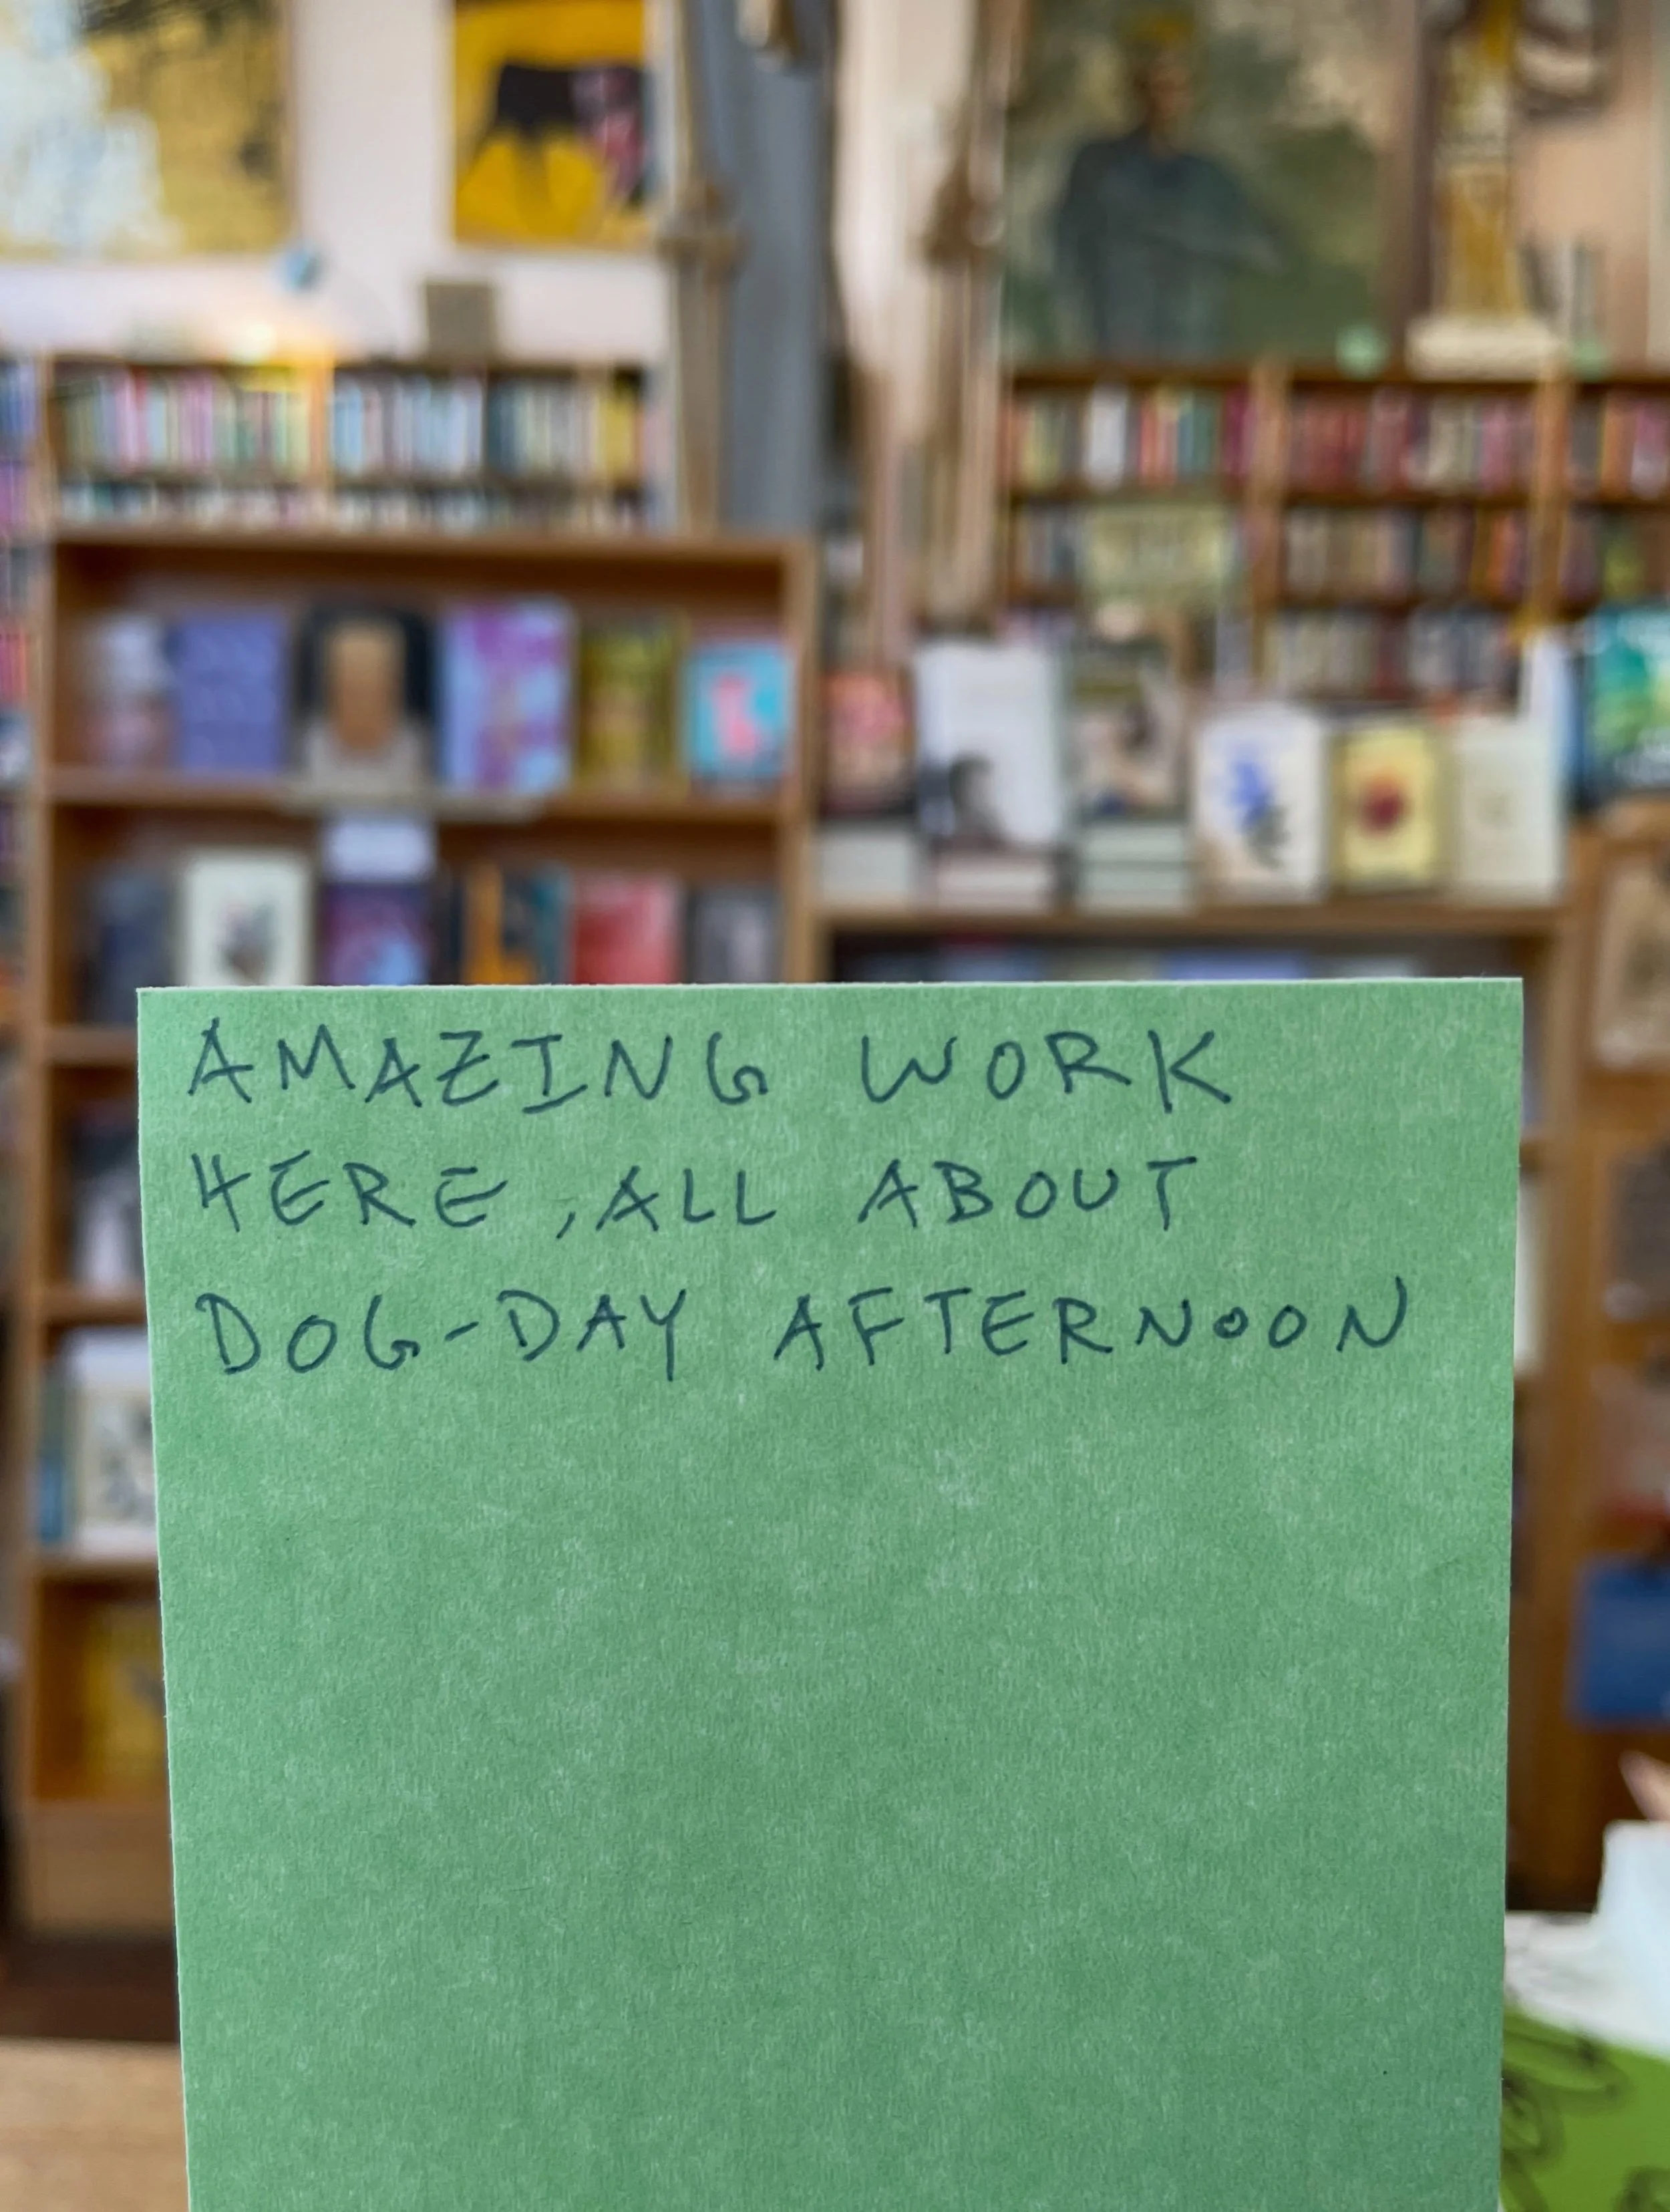 AMAZING WORK
HERE, ALL ABOUT
DOG-DAY AFTERNOON